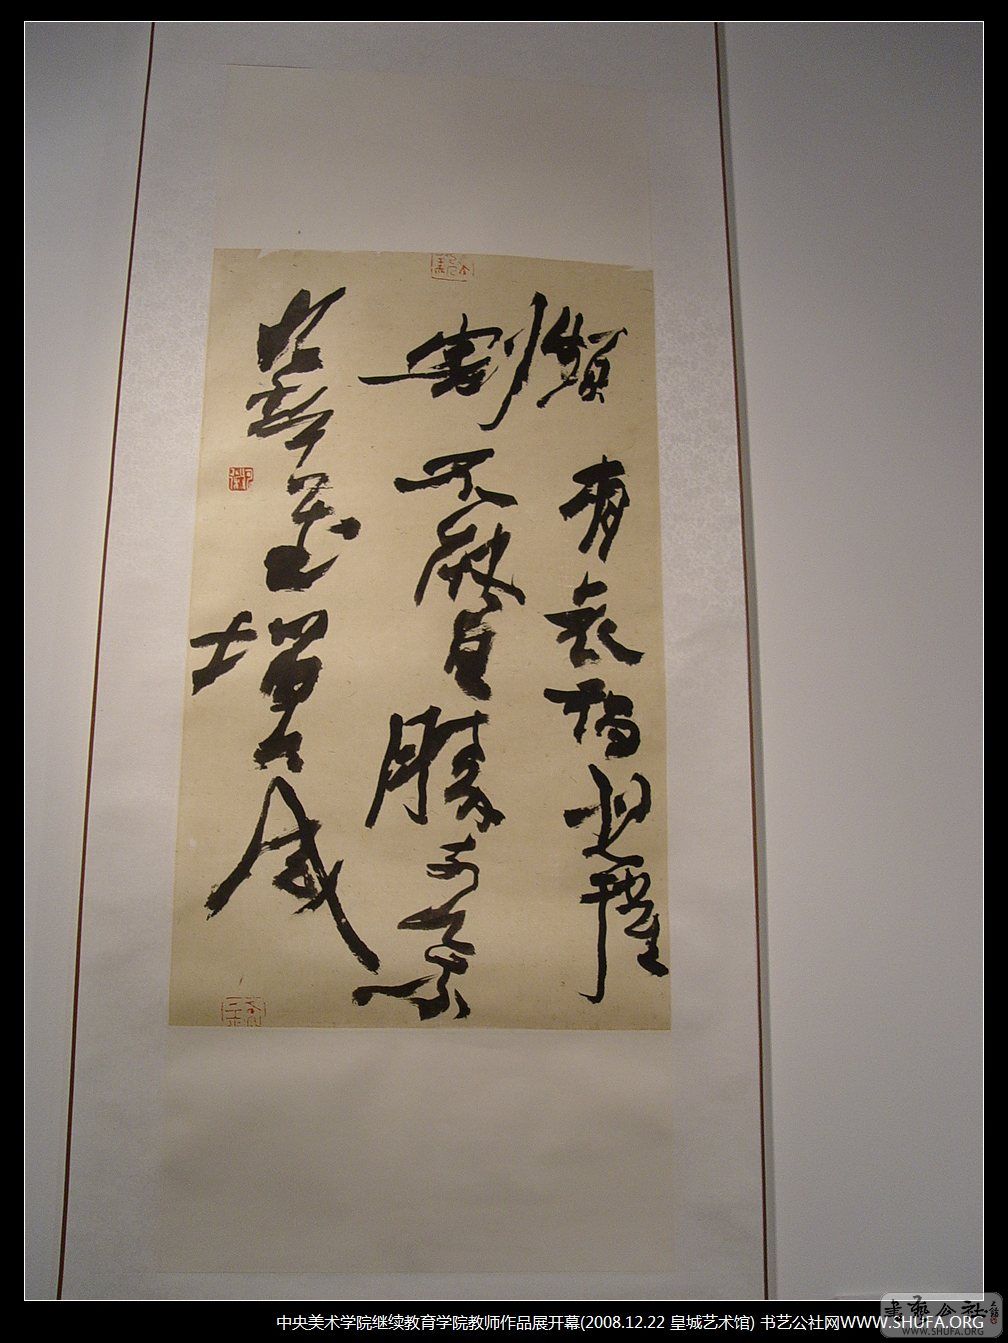 頻有哀禍悲摧
割不能自勝奈何
增感
中央美术学院继续教育学院教师作品展开幕(2008.12.22 皇城艺术馆) 书艺公社网WWW.SHUFA.ORG
書藝公社
WWW.SHUFA.ORG